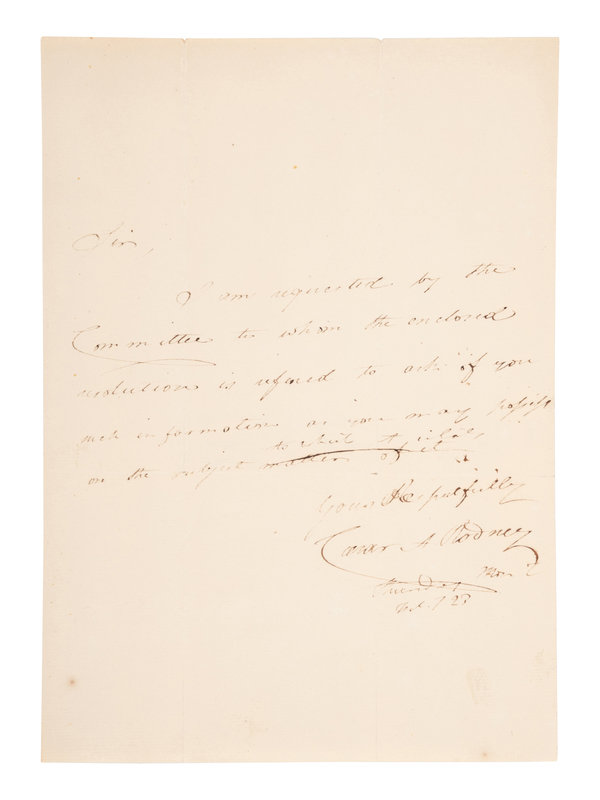 Sir,
I am requested by the
Committee to whom the enclosed
resolution is refered to ask of you
such information as you may possess
on the subject to which it
Yours Respectfully
Caesar A Rodney
Thursday